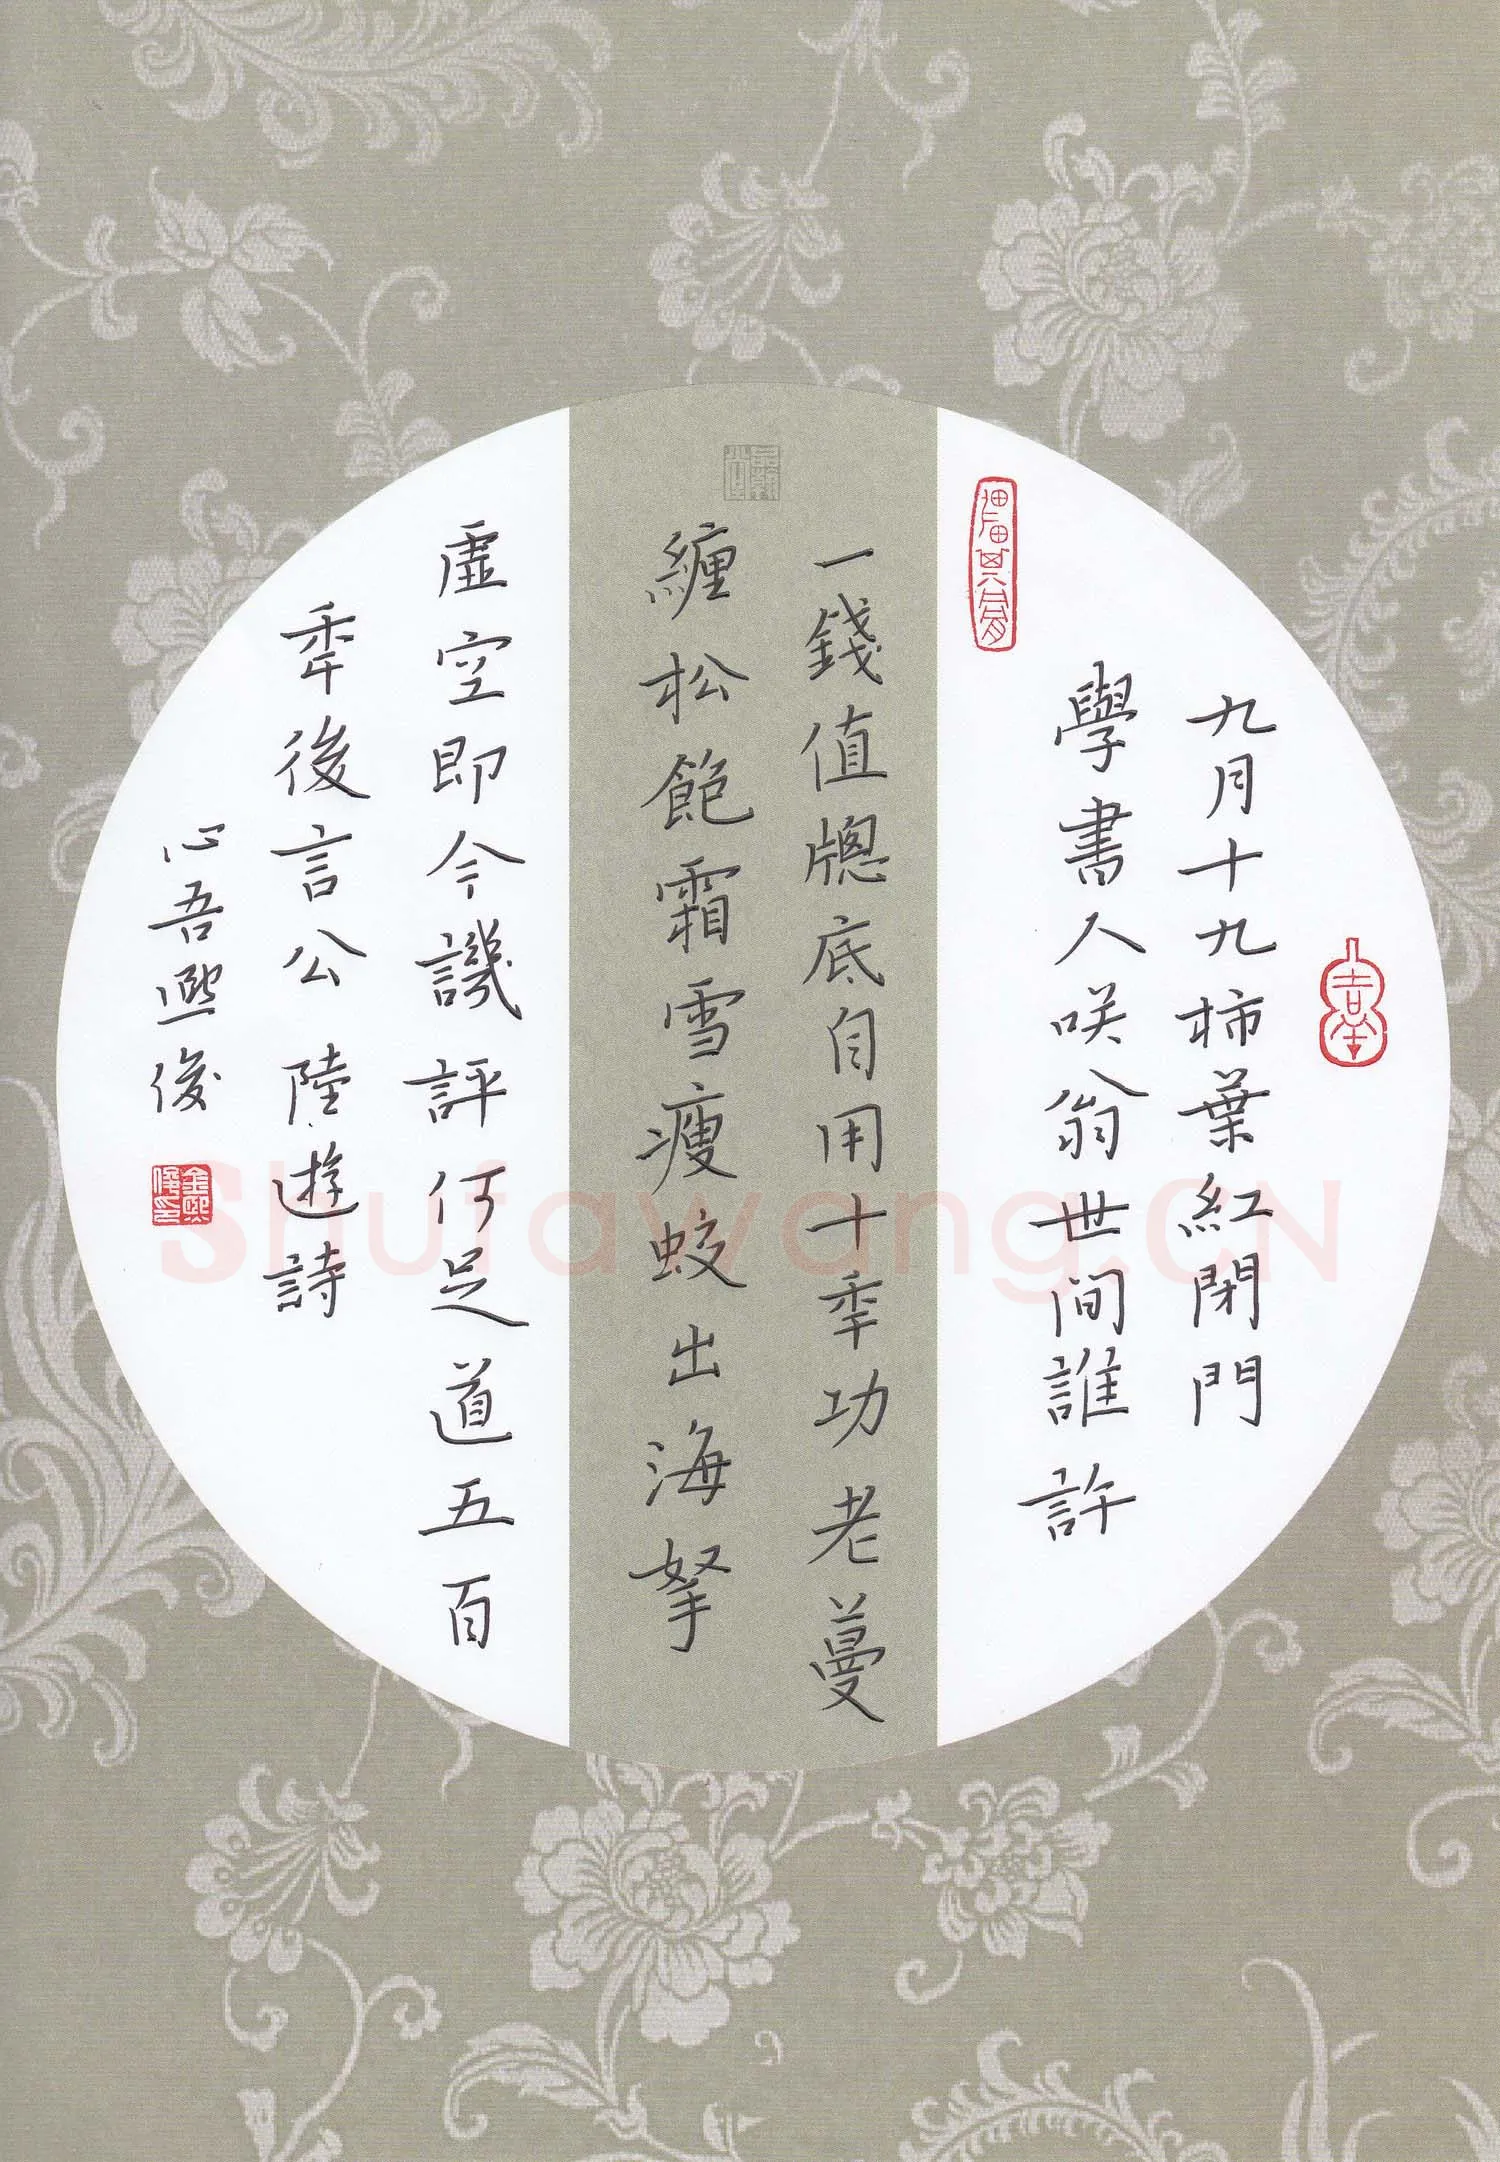 九月十九柿葉紅閉門
學書人咲翁世间誰許
一錢值牕底自用十秊功老蔓
纏松飽霜雪瘦蛟出海拏
虛空即今譏評何足道五百
秊後言公 陸遊詩
心吾熙俊
金熙俊印
Shufawang.CN